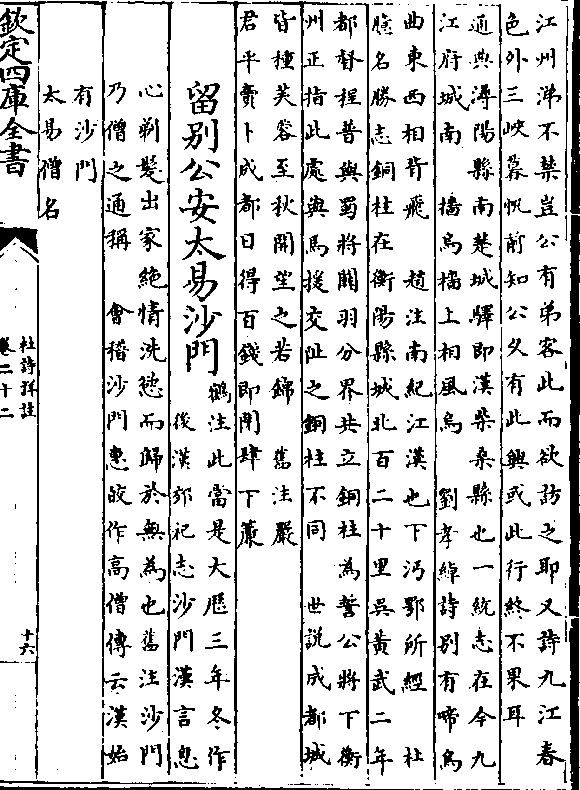 江州涕不禁豈公有弟客此而欲訪之耶又詩九江春
色外三峽暮帆前知公久有此興或此行終不果耳
通典潯陽縣南楚城驛即漢柴桑縣也一統志在今九
江府城南　檣烏檣上相風烏　劉孝綽詩別有啼烏
曲東西相背飛　趙注南紀江漢也下沔鄂所經　杜
臆名勝志銅柱在衡陽縣城北百二十里吳黃武二年
都督程普與蜀將關羽分界共立銅柱為誓公將下衡
州正指此處與馬援交阯之銅柱不同　世說成都城
皆種芙蓉至秋開望之若錦　舊注嚴
君平賣卜成都日得百錢即閉肆下簾
留別公安太易沙門
鶴注此當是大厯三年冬作
後漢郊祀志沙門漢言息
心剃髮出家絶情洗慾而歸於無為也舊注沙門
乃僧之通稱　會稽沙門惠皎作高僧傳云漢始
有沙門
太易僧名
欽定四庫全書
杜詩詳註
卷二十二
十六